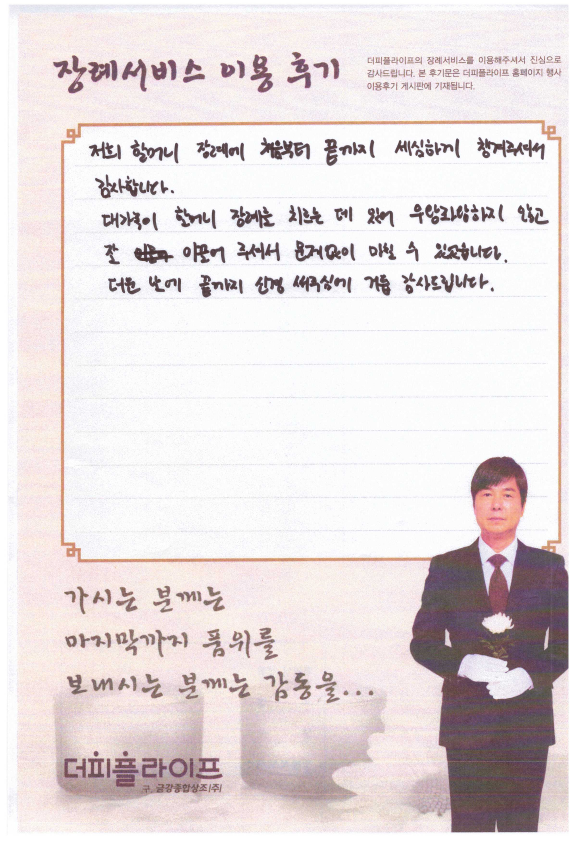 장례서비스 이용 후기
더피플라이프의 장례서비스를 이용해주셔서 진심으로
감사드립니다. 본 후기문은 더피플라이프 홈페이지 행사
이용후기 게시판에 기재됩니다.
저희 할머니 장례에 처음부터 끝까지 세심하게 챙겨주셔서
감사합니다.
대가족이 할머니 장례를 치르는 데 있어 우왕좌왕하지 않고
잘 이끌어 주셔서 문제없이 마칠 수 있었습니다.
더운 날에 끝까지 신경 써주심에 거듭 감사드립니다.
가시는 분께는
마지막까지 품위를
보내시는 분께는 감동을...
더피플라이프
구. 금강종합상조(주)